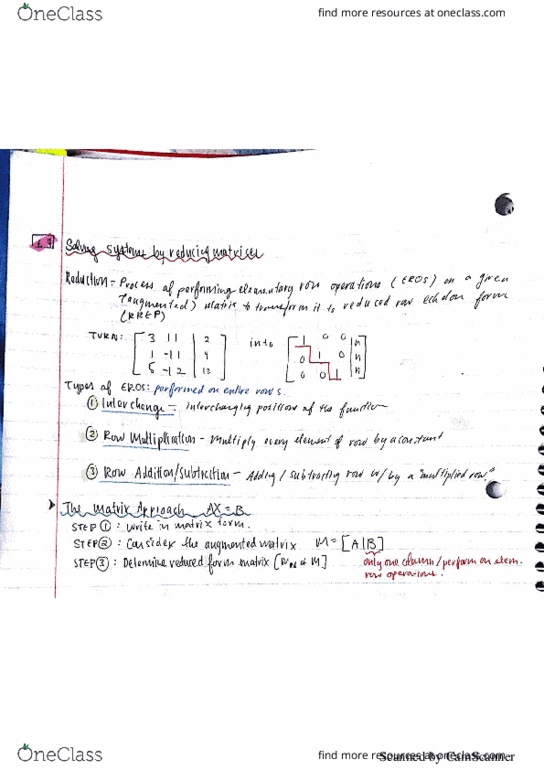 OneClass
find more resources at oneclass.com
Solving systems by reducing matrices
Reduction - Process of performing elementary row operations (EROS) on a given
(augmented) matrix to transform it to reduced row echelon form
(RREP)
TURN: into
3 1 1 2
1 -1 1 4
5 -1 2 12
1 0 0 n
0 1 0 n
0 0 1 n
Types of EROS: performed on entire rows.
① Interchange - interchanging positions of the function
② Row Multiplication - Multiply every element of row by a constant
③ Row Addition/subtraction - Adding / subtracting row w/ by a "multiplied row"
The matrix Approach AX = B
STEP ①: Write in matrix form.
STEP ②: Consider the augmented matrix M = [A|B]
STEP ③: Determine reduced form matrix [ of M]
only one column/perform on elem.
row operations.
OneClass
find more resources at oneclass.com
Scanned by CamScanner